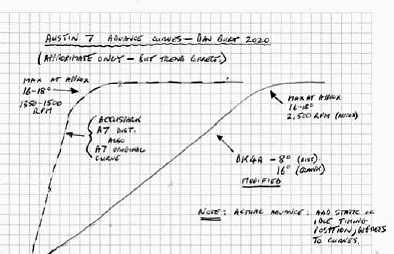 AUSTIN 7 ADVANCE CURVES - DAN BURT 2020
(APPROXIMATE ONLY - BUT TREND CORRECT.)
MAX AT APPROX
16-18°
1350-1500
RPM
ACCUSPARK
A7 DIST.
ALSO
A7 ORIGINAL
CURVE
MAX AT APPROX
16-18°
2,500 RPM
DK4A - 8° (DIST)
16° (CRANK)
MODIFIED
NOTE: ACTUAL ADVANCE: ADD STATIC OR
IDLE TIMING
POSITION, DEGREES
TO CURVES.